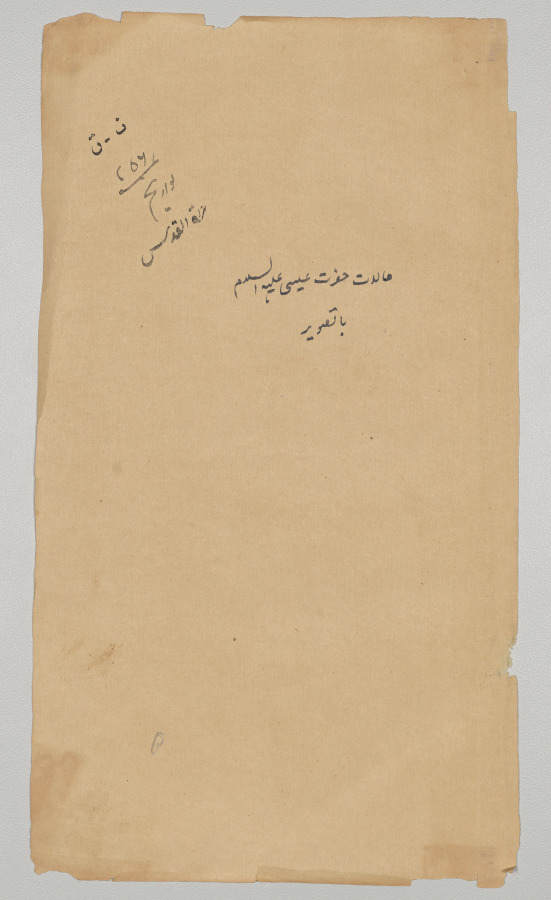 ن - ق
٢٥٦
تواریخ
مرآة القدس
حالات حضرت عیسی علیہ السلام
با تصویر